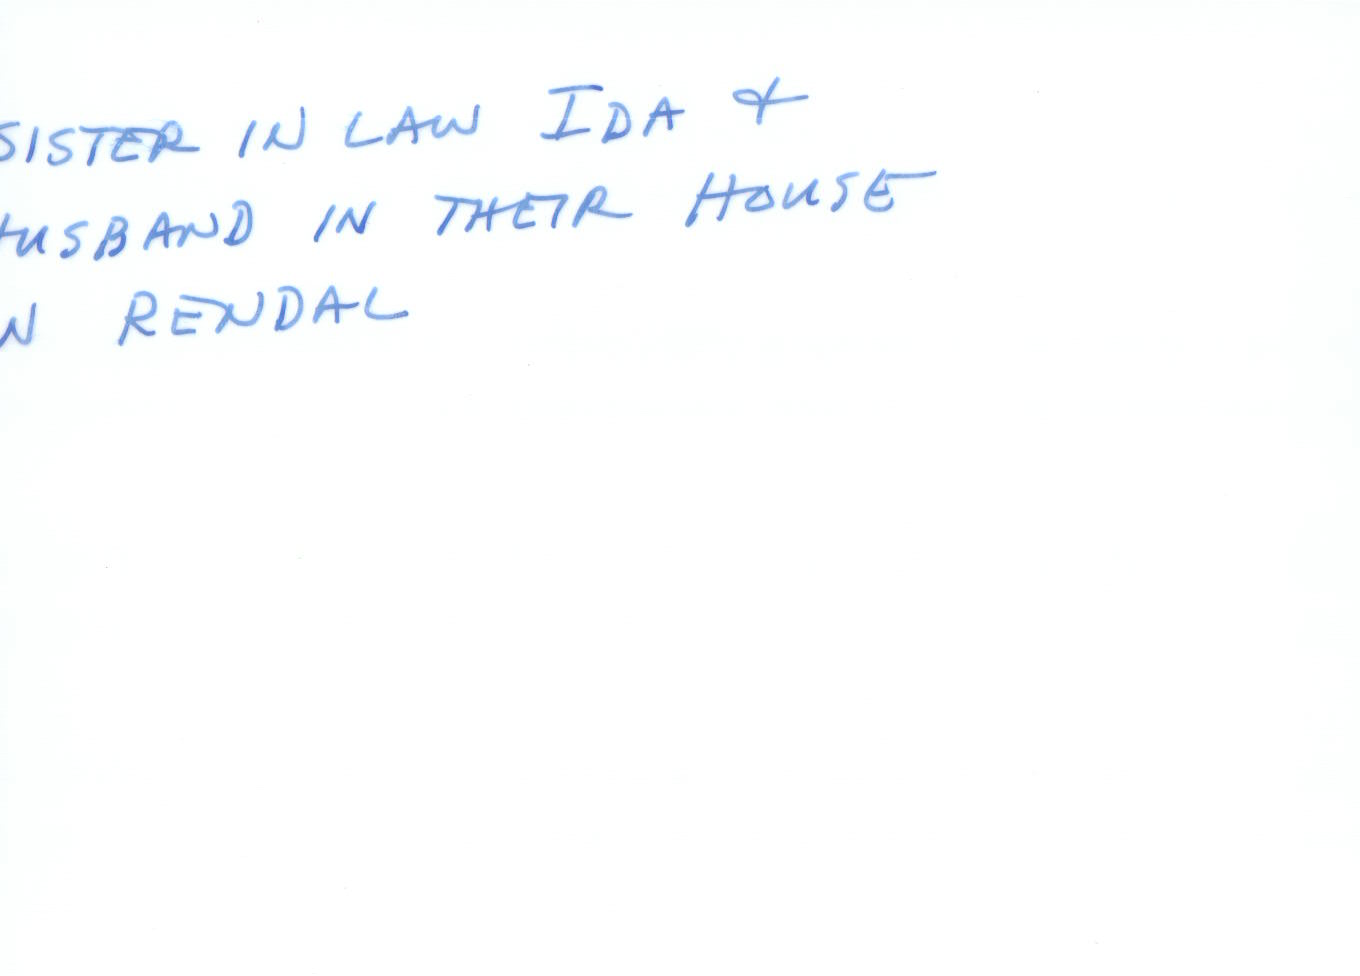 SISTER IN LAW IDA &
HUSBAND IN THEIR HOUSE
N RENDAL